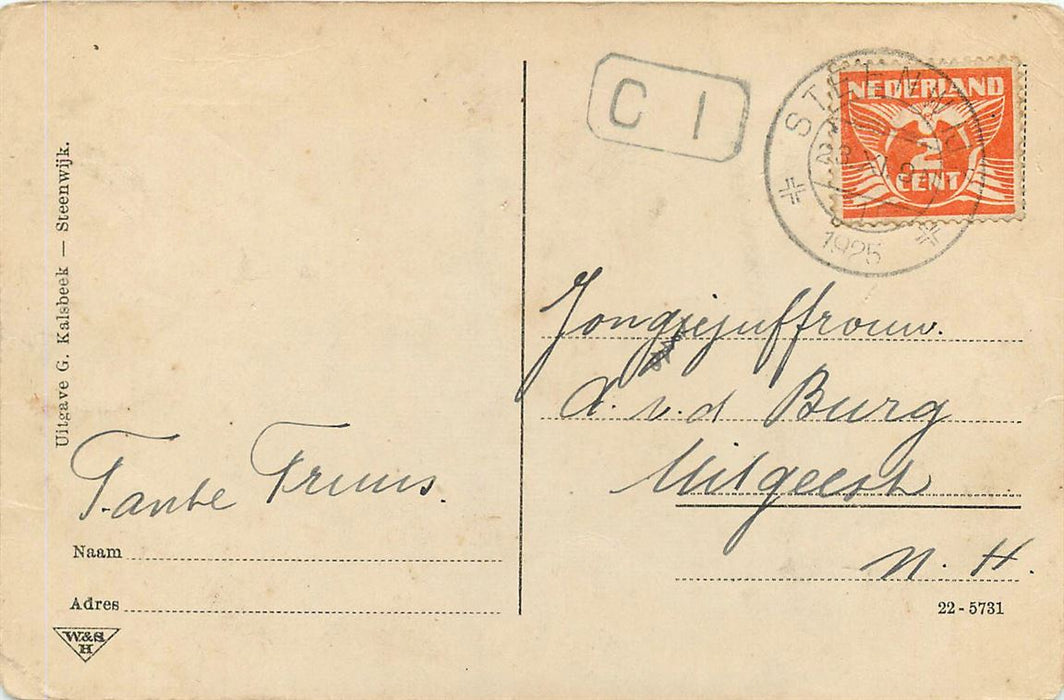 Uitgave G. Kalsbeek — Steenwijk.
Tante Truus.
Naam
Adres
W&S
H
C 1
STEENWIJK
1925
NEDERLAND
2
CENT
Jongejuffrouw.
A. v. d Burg
Uitgeest
N. H.
22-5731